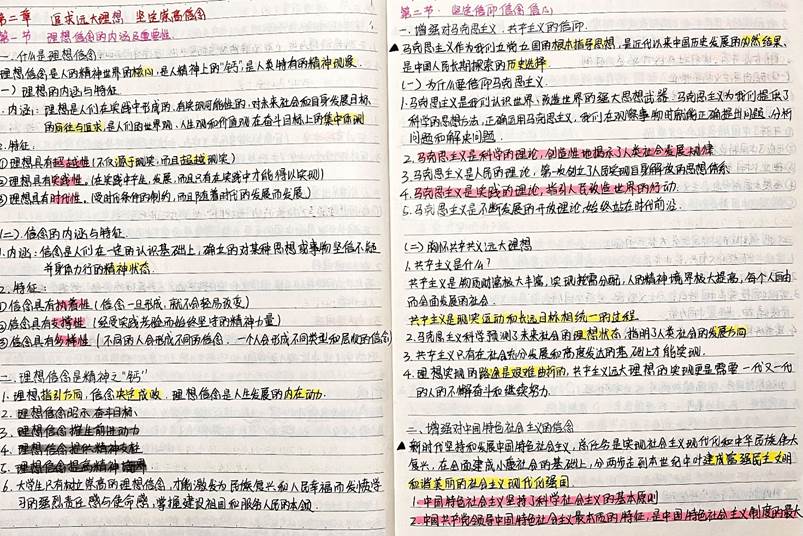 第二章 追求远大理想 坚定崇高信念
第一节 理想信念的内涵及重要性
一.什么是理想信念
理想信念是人的精神世界的核心,是人精神上的"钙",是人类特有的精神现象.
(一)理想的内涵与特征
1.内涵:理想是人们在实践中形成的、有实现可能性的、对未来社会和自身发展目标
的向往与追求,是人们的世界观、人生观和价值观在奋斗目标上的集中体现
2.特征:
①理想具有超越性(不仅源于现实,而且超越现实)
②理想具有实践性.(在实践中产生,发展,而且只有在实践中才能得以实现)
③理想具有时代性.(受时代条件的制约,而且随着时代的发展而发展)
(二)信念的内涵与特征
1.内涵:信念是人们在一定的认识基础上,确立的对某种思想或事物坚信不疑
并身体力行的精神状态.
2.特征:
①信念具有执着性(信念一旦形成,就不会轻易改变)
②信念具有支撑性(经受实践考验而始终坚守的精神力量)
③信念具有多样性(不同的人会形成不同的信念,一个人会形成不同类型和层次的信念)
二.理想信念是精神之"钙"
1.理想指引方向,信念决定成败.理想信念是人生发展的内在动力.
2.理想信念昭示奋斗目标
3.理想信念催生前进动力
4.理想信念提供精神支柱
5.理想信念提高精神境界
6.大学生只有树立崇高的理想信念,才能激发为民族复兴和人民幸福而发愤学
习的强烈责任感与使命感,掌握建设祖国和服务人民的本领.
第二节. 坚定信仰信念信心
一.增强对马克思主义、共产主义的信仰.
▲马克思主义作为我们立党立国的根本指导思想,是近代以来中国历史发展的必然结果,
是中国人民长期探索的历史选择.
(一)为什么要信仰马克思主义.
1.马克思主义是我们认识世界、改造世界的强大思想武器.马克思主义为我们提供了
科学的思想方法,正确运用马克思主义,我们在观察事物时就能正确提出问题、分析
问题和解决问题.
2.马克思主义是科学的理论,创造性地揭示了人类社会发展规律
3.马克思主义是人民的理论,第一次创立了人民实现自身解放的思想体系
4.马克思主义是实践的理论,指引人民改造世界的行动.
5.马克思主义是不断发展的开放理论,始终站在时代前沿.
(二)胸怀共产主义远大理想
1.共产主义是什么?
共产主义是物质财富极大丰富,实现按需分配,人的精神境界极大提高,每个人自由
而全面发展的社会.
共产主义是现实运动和长远目标相统一的过程
2.马克思主义科学预测了未来社会的理想状态,指明了人类社会的发展方向
3.共产主义只有在社会充分发展和高度发达的基础上才能实现.
4.理想实现的路途是艰难曲折的,共产主义远大理想的实现更是需要一代又一代
的人的不懈奋斗和继续努力.
二、增强对中国特色社会主义的信念
▲新时代坚持和发展中国特色社会主义,总任务是实现社会主义现代化和中华民族伟大
复兴,在全面建成小康社会的基础上,分两步走到本世纪中叶建成富强民主文明
和谐美丽的社会主义现代化强国.
1.中国特色社会主义坚持了科学社会主义的基本原则
2.中国共产党领导中国特色社会主义最本质的特征,是中国特色社会主义制度的最大